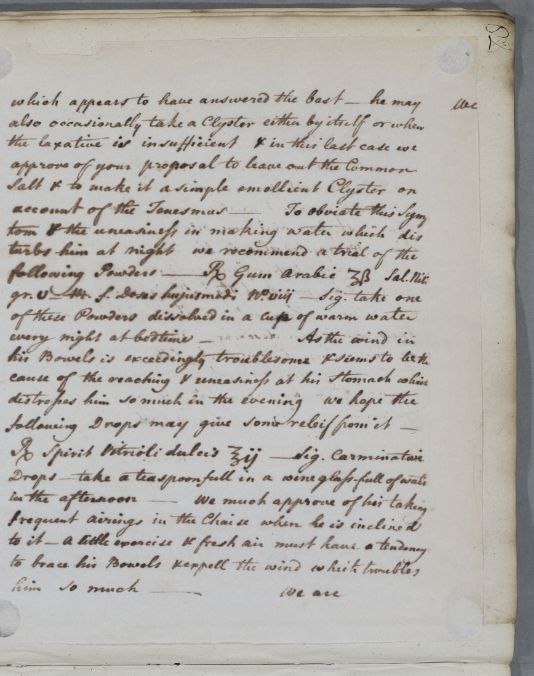 82
which appears to have answered the best — he may
We
also occasionally take a Clyster either by itself or when
the laxative is insufficient & in this last case we
approve of your proposal to leave out the Common
Salt & to make it a simple emollient Clyster on
account of the Tenesmus — To obviate this Symp
tom & the uneasiness in making water which dis
turbs him at night we recommend a trial of the
following Powders — ℞ Gum Arabic ʒß Sal. Nit.
gr. v — M. f. Dosis hujusmodi No viij — Sig. take one
of these Powders dissolved in a cup of warm water
every night at bedtime — As the wind in
his Bowels is exceedingly troublesome & seems to be the
cause of the reaching & uneasiness at his Stomach which
distresses him so much in the evening we hope the
following Drops may give some releif from it —
℞ Spirit Vitrioli dulcis ʒij — Sig. Carminative
Drops — take a teaspoonfull in a wine glass-full of water
in the afternoon — We much approve of his taking
frequent airings in the Chaise when he is inclined
to it — a little exercise & fresh air must have a tendency
to brace his Bowels & expell the wind which troubles
him so much — We are